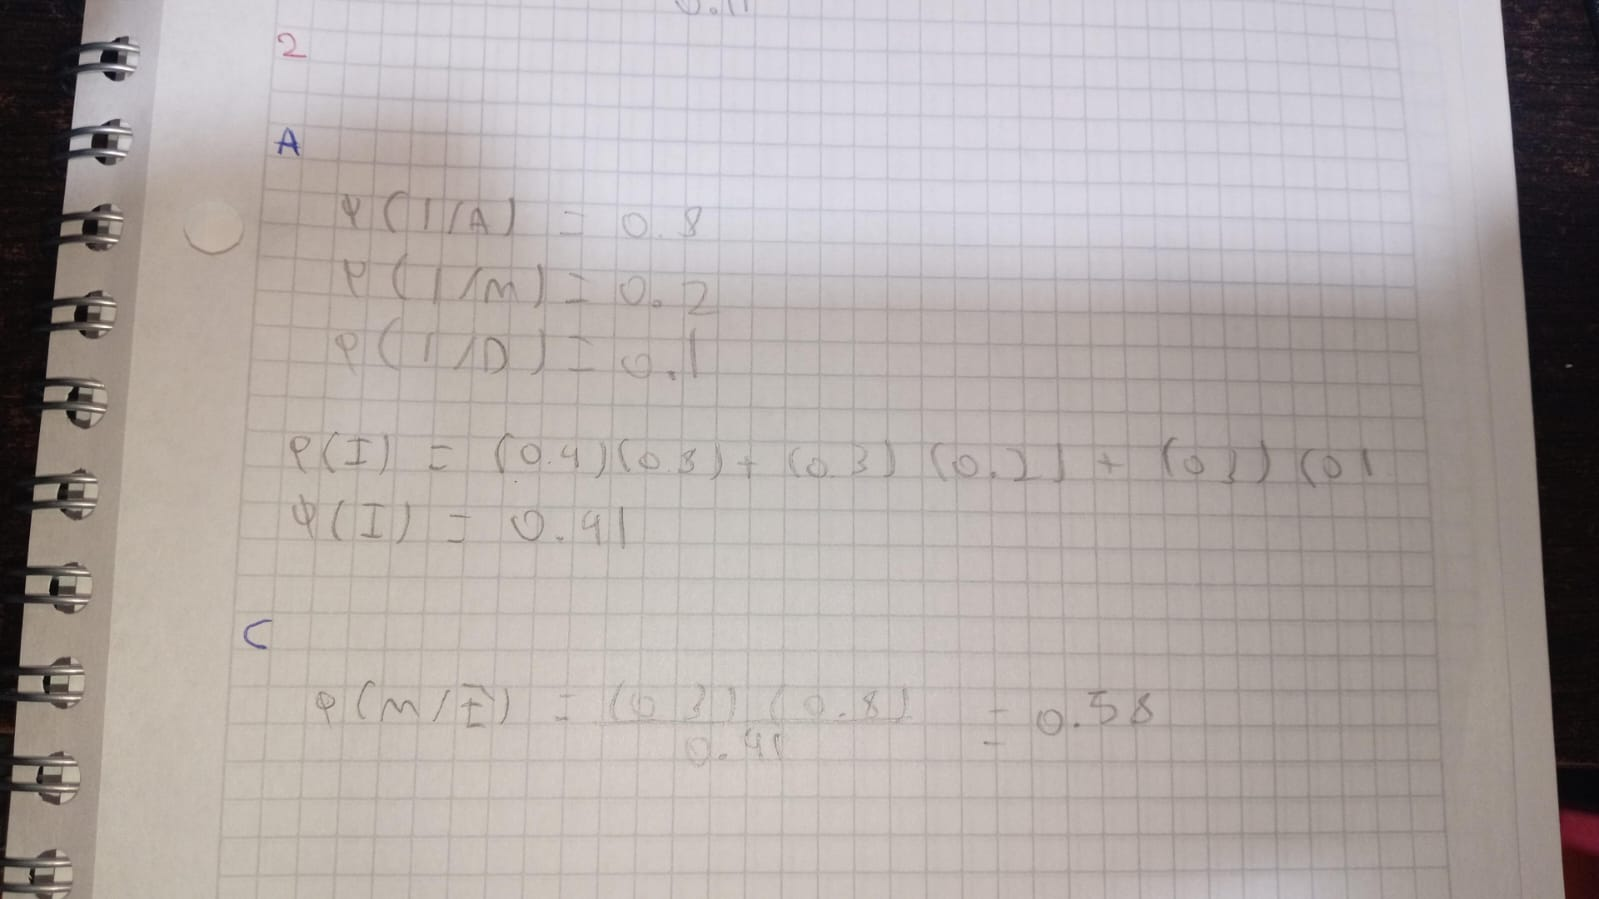 0.11
2
A
P(I/A) = 0.8
P(I/M) = 0.2
P(I/D) = 0.1
P(I) = (0.4)(0.8) + (0.3) (0.2) + (0.3) (0.1
P(I) = 0.41
C
P(M/I̅) = (0.3) (0.8) / 0.41 = 0.58